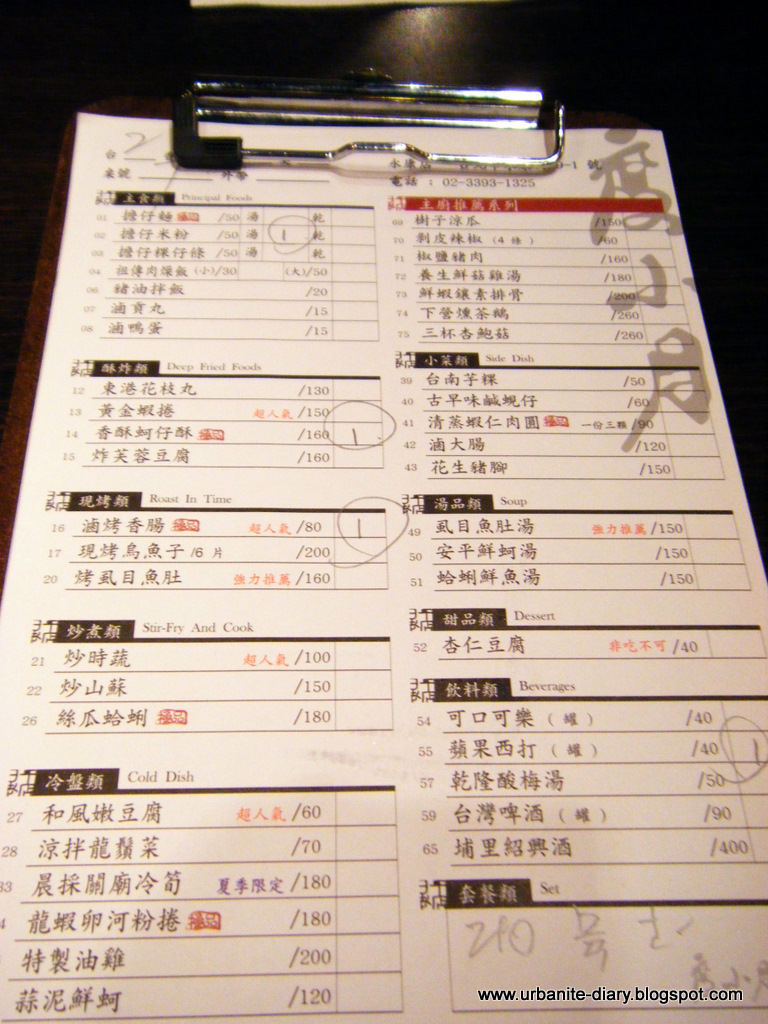 電話：02-3393-1325
主食類 Principal Foods
01 擔仔麵 極品 /50 湯 乾
02 擔仔米粉 /50 湯 1 乾
03 擔仔粿仔條 /50 湯 乾
04 祖傳肉燥飯 (小)/30 (大)/50
06 豬油拌飯 /20
07 滷貢丸 /15
08 滷鴨蛋 /15
酥炸類 Deep Fried Foods
12 東港花枝丸 /130
13 黃金蝦捲 超人氣 /150
14 香酥蚵仔酥 極品 /160 1
15 炸芙蓉豆腐 /160
現烤類 Roast In Time
16 滷烤香腸 極品 超人氣 /80 1
17 現烤烏魚子 /6 片 /200
20 烤虱目魚肚 強力推薦 /160
炒煮類 Stir-Fry And Cook
21 炒時蔬 超人氣 /100
22 炒山蘇 /150
26 絲瓜蛤蜊 極品 /180
冷盤類 Cold Dish
27 和風嫩豆腐 超人氣 /60
28 涼拌龍鬚菜 /70
33 晨採關廟冷筍 夏季限定 /180
龍蝦卵河粉捲 極品 /180
特製油雞 /200
蒜泥鮮蚵 /120
主廚推薦系列
69 樹子涼瓜 /150
70 剝皮辣椒 (4 條) /60
71 椒鹽豬肉 /160
72 養生鮮菇雞湯 /180
73 鮮蝦鑲素排骨 /200
74 下營燻茶鵝 /260
75 三杯杏鮑菇 /260
小菜類 Side Dish
39 台南芋粿 /50
40 古早味鹹蜆仔 /60
41 清蒸蝦仁肉圓 極品 一份三顆 /90
42 滷大腸 /120
43 花生豬腳 /150
湯品類 Soup
49 虱目魚肚湯 強力推薦 /150
50 安平鮮蚵湯 /150
51 蛤蜊鮮魚湯 /150
甜品類 Dessert
52 杏仁豆腐 非吃不可 /40
飲料類 Beverages
54 可口可樂 (罐) /40
55 蘋果西打 (罐) /40 1
57 乾隆酸梅湯 /50
59 台灣啤酒 (罐) /90
65 埔里紹興酒 /400
套餐類 Set
度小月
www.urbanite-diary.blogspot.com